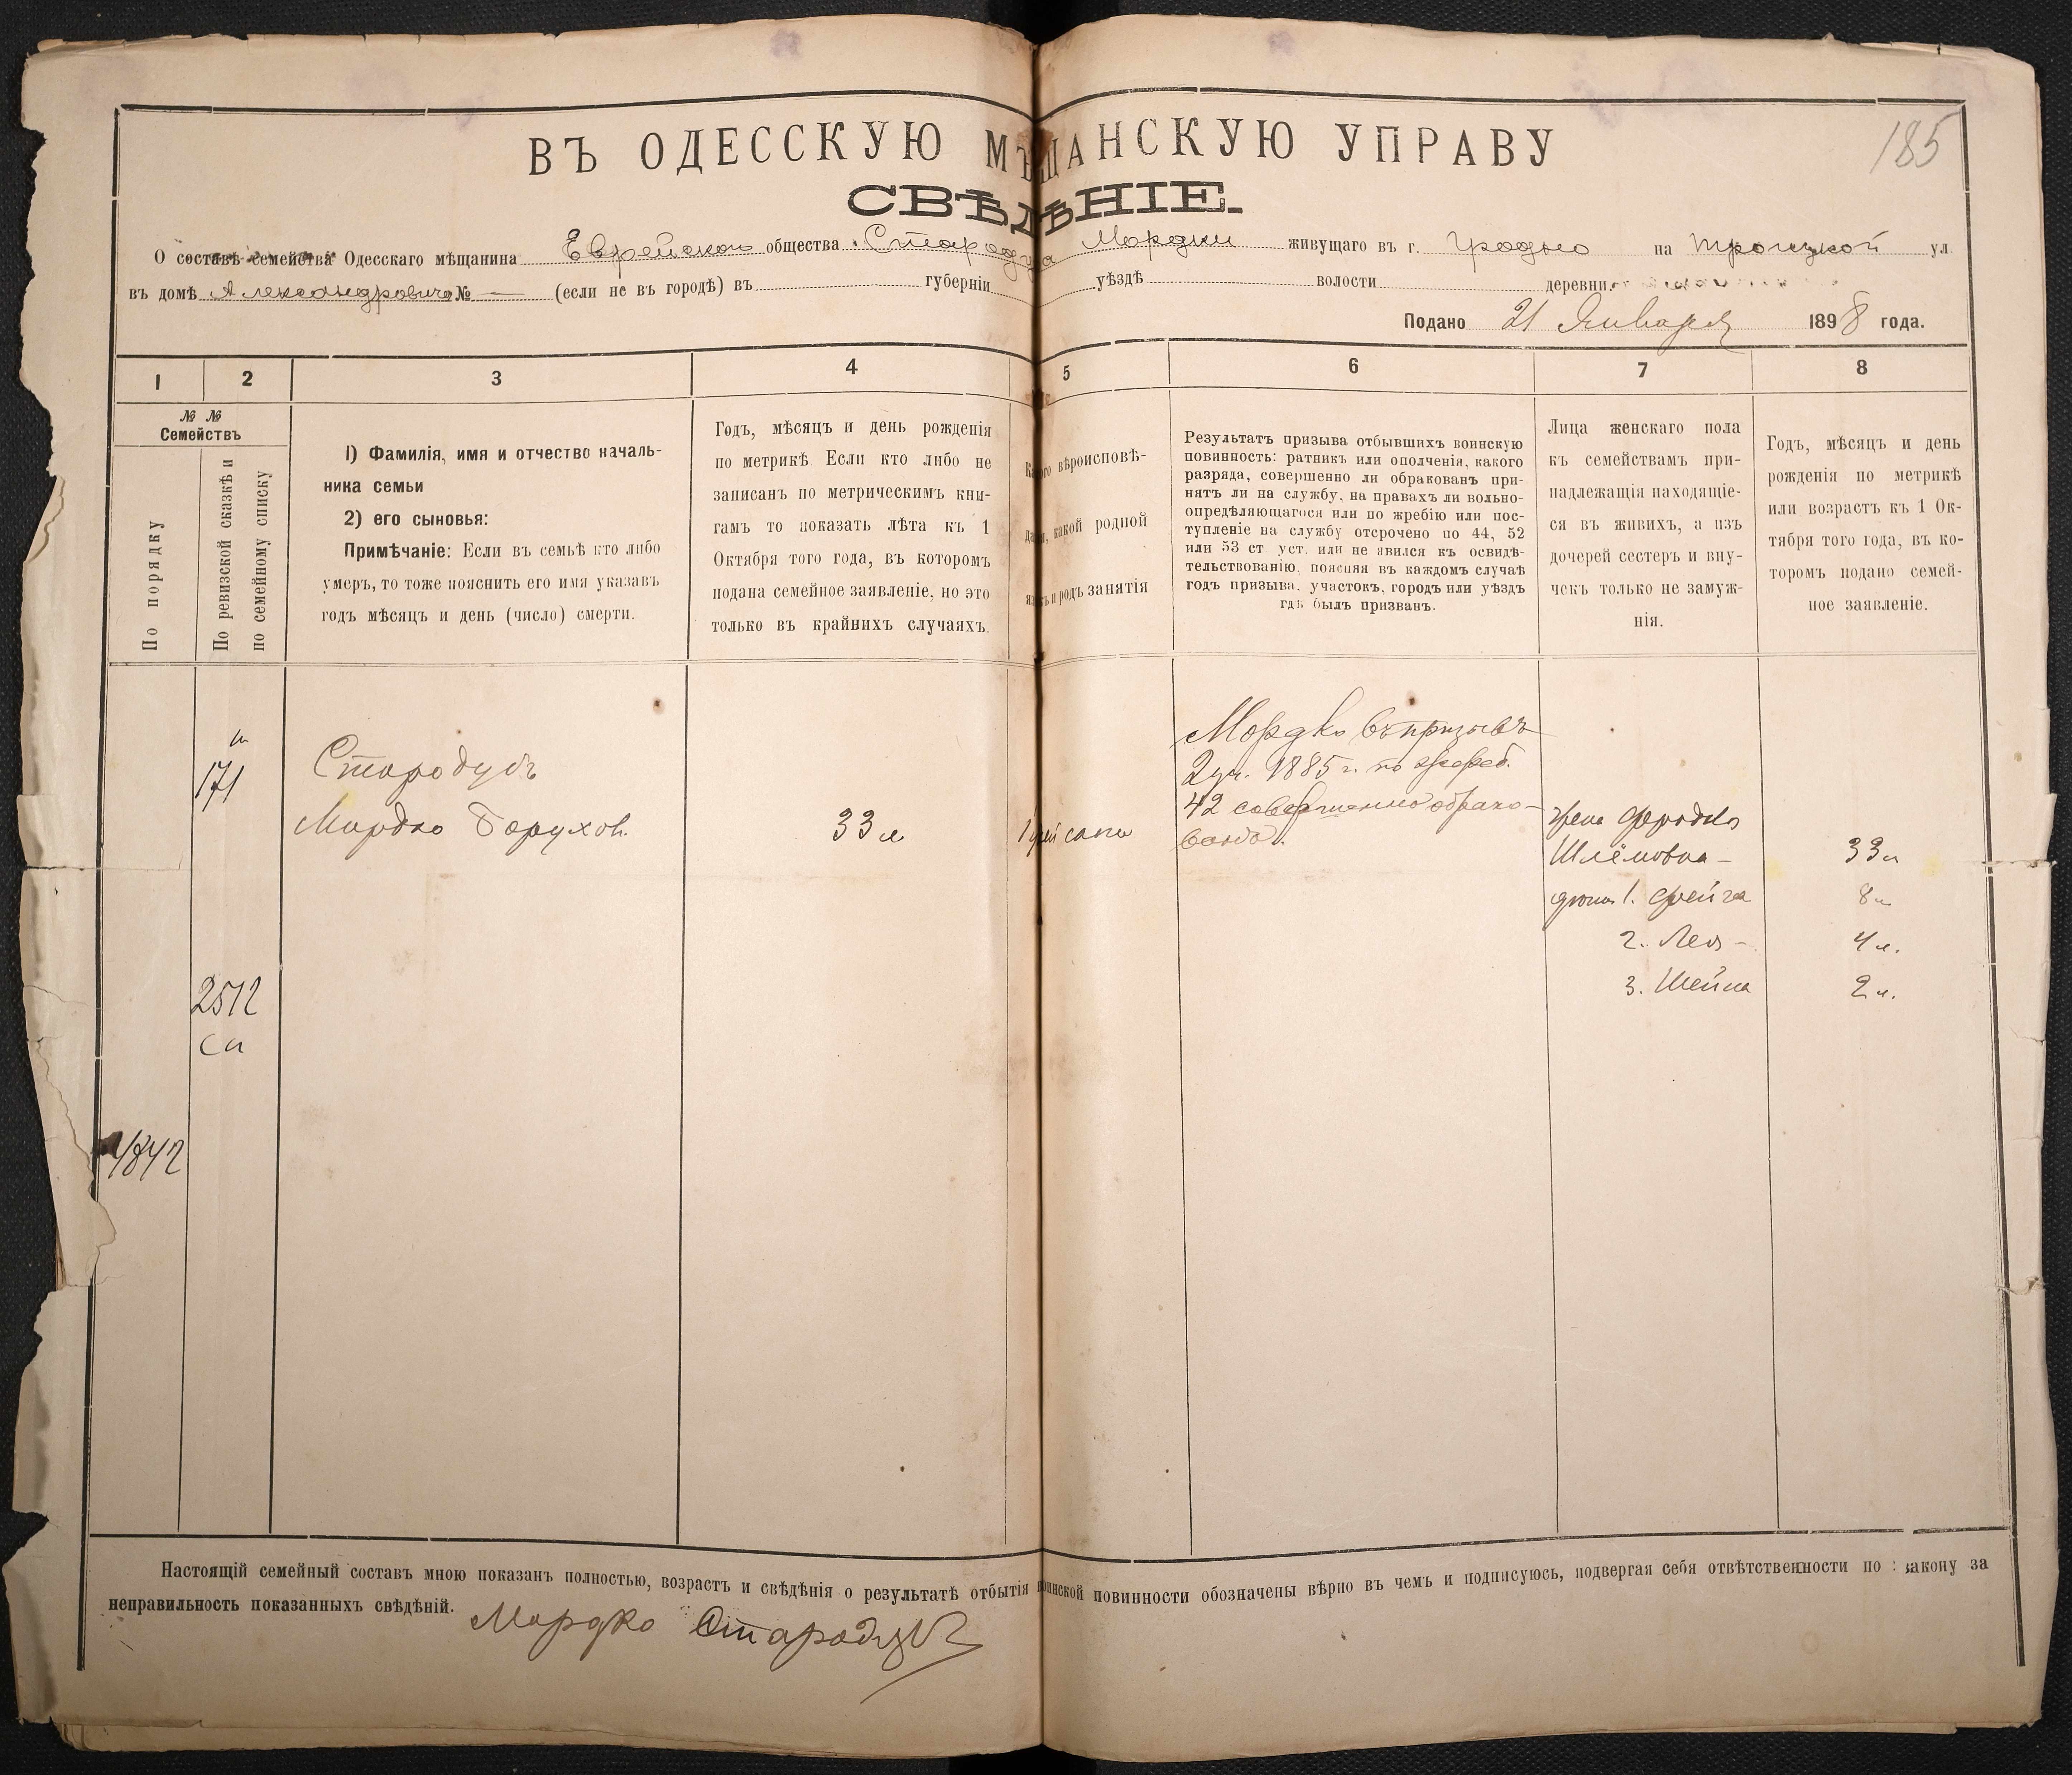 185
ВЪ ОДЕССКУЮ МѢЩАНСКУЮ УПРАВУ
СВѢДѢНІЕ.
О составѣ семейства Одесскаго мѣщанина Еврейскаго общества Стародуба Мордки живущаго въ г. Гродно на Троицкой ул.
въ домѣ Александровича № — (если не въ городѣ) въ губерніи уѣздѣ волости деревни
Подано 21 Января 1898 года.
1 2 3 4 5 6 7 8
№ №
Семействъ
По порядку
По ревизской сказкѣ и
по семейному списку
1) Фамилія, имя и отчество началь-
ника семьи
2) его сыновья:
Примѣчаніе: Если въ семьѣ кто либо
умеръ, то тоже пояснить его имя указавъ
годъ мѣсяцъ и день (число) смерти.
Годъ, мѣсяцъ и день рожденія
по метрикѣ. Если кто либо не
записанъ по метрическимъ кни-
гамъ то показать лѣта къ 1
Октября того года, въ которомъ
подана семейное заявленіе, но это
только въ крайнихъ случаяхъ.
Какого вѣроисповѣ-
данія, какой родной
языкъ и родъ занятія
Результатъ призыва отбывшихъ воинскую
повинность: ратникъ или ополченія, какого
разряда, совершенно ли обракованъ при-
нятъ ли на службу, на правахъ ли вольно-
опредѣляющагося или по жребію или пос-
тупленіе на службу отсрочено по 44, 52
или 53 ст уст. или не явился къ освидѣ-
тельствованію, поясняя въ каждомъ случаѣ
годъ призыва, участокъ, городъ или уѣздъ
гдѣ былъ призванъ.
Лица женскаго пола
къ семействамъ при-
надлежащія находящіе-
ся въ живихъ, а изъ
дочерей сестеръ и вну-
чекъ только не замуж-
нія.
Годъ, мѣсяцъ и день
рожденія по метрикѣ
или возрастъ къ 1 Ок-
тября того года, въ ко-
торомъ подано семей-
ное заявленіе.
171
Стародубъ
Мордко Борухов.
33 л
Мордко въ призывъ
2 уч. 1885 г. по жереб.
42 совершенно обрако-
ванъ.
жена
Шлёмовна – 33 л
1. Фейга 8 л
2. Лея – 4 л.
3. Шейна 2 л.
2512
сп
4842
Настоящій семейный составъ мною показанъ полностью, возрастъ и свѣдѣнія о результатѣ отбытія воинской повинности обозначены вѣрно въ чемъ и подписуюсь, подвергая себя отвѣтственности по закону за
неправильность показанныхъ свѣдѣній.
Мордко Стародубъ